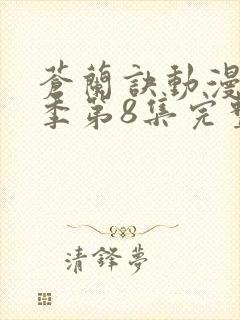 蒼蘭訣動漫
季第8集完
清鋒夢